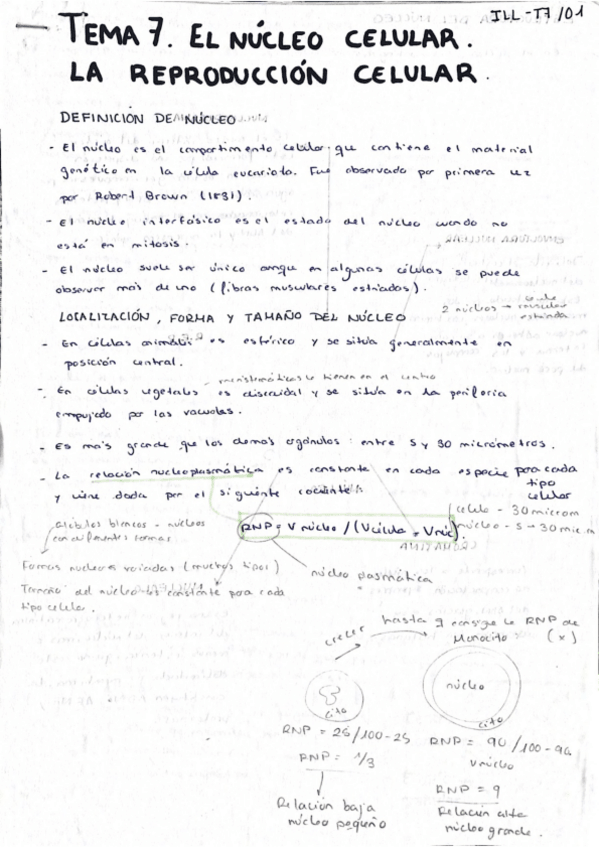 ILL-T7/01
TEMA 7. EL NÚCLEO CELULAR.
LA REPRODUCCIÓN CELULAR.
DEFINICIÓN DE NÚCLEO
- El núcleo es el compartimento celular que contiene el material
genético en la célula eucariota. Fue observado por primera vez
por Robert Brown (1831).
- El núcleo interfásico es el estado del núcleo cuando no
está en mitosis.
- El núcleo suele ser único aunque en algunas células se puede
observar más de uno (fibras musculares estriadas).
2 núcleos →
LOCALIZACIÓN, FORMA Y TAMAÑO DEL NÚCLEO
- En células animales es esférico y se situa generalmente en
posición central.
lo tienen en el centro
- En células vegetales es discoidal y se situa en la periferia
empujado por las vacuolas.
- Es más grande que los demás orgánulos: entre 5 y 30 micrómetros.
- La relación nucleoplasmática es constante en cada especie para cada
tipo
celular
y viene dada por el siguiente cociente:
célula - 30 microm
RNP = V núcleo / (V célula - V núc).
núcleo - 5 → 30 mic.m
glóbulos blancos - núcleos
con diferentes formas
Formas nucleares variadas (muchos tipos)
núcleo plasmática
Tamaño del núcleo es constante para cada
tipo celular.
crecer
hasta q consigue la RNP de
Monocito
(x)
núcleo
cito
cito
RNP = 25/100-25
RNP = 90/100-90
RNP = 1/3
V núcleo
RNP = 9
Relación baja
núcleo pequeño
Relación alta
núcleo grande.